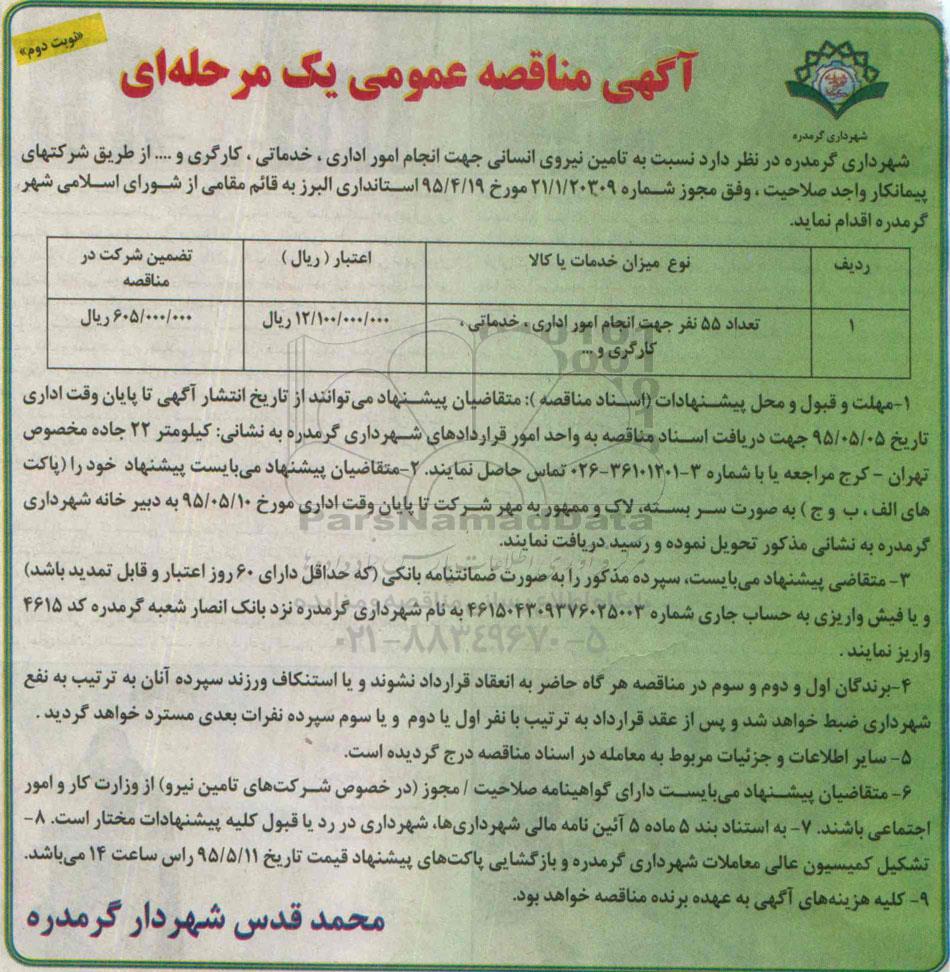 «نوبت دوم»
آگهی مناقصه عمومی یک مرحله‌ای
شهرداری گرمدره
شهرداری گرمدره در نظر دارد نسبت به تامین نیروی انسانی جهت انجام امور اداری ، خدماتی ، کارگری و .... از طریق شرکتهای
پیمانکار واجد صلاحیت ، وفق مجوز شماره ۲۱/۱/۲۰۳۰۹ مورخ ۹۵/۴/۱۹ استانداری البرز به قائم مقامی از شورای اسلامی شهر
گرمدره اقدام نماید.
ردیف نوع میزان خدمات یا کالا اعتبار ( ریال ) تضمین شرکت در
مناقصه
۱ تعداد ۵۵ نفر جهت انجام امور اداری ، خدماتی ، ۱۲/۱۰۰/۰۰۰/۰۰۰ ریال ۶۰۵/۰۰۰/۰۰۰ ریال
کارگری و ...
۱-مهلت و قبول و محل پیشنهادات (اسناد مناقصه ): متقاضیان پیشنهاد می‌توانند از تاریخ انتشار آگهی تا پایان وقت اداری
تاریخ ۹۵/۰۵/۰۵ جهت دریافت اسناد مناقصه به واحد امور قراردادهای شهرداری گرمدره به نشانی: کیلومتر ۲۲ جاده مخصوص
تهران - کرج مراجعه یا با شماره ۳-۳۶۱۰۱۲۰۱-۰۲۶ تماس حاصل نمایند. ۲-متقاضیان پیشنهاد می‌بایست پیشنهاد خود را (پاکت
های الف ، ب و ج ) به صورت سر بسته، لاک و ممهور به مهر شرکت تا پایان وقت اداری مورخ ۹۵/۰۵/۱۰ به دبیر خانه شهرداری
گرمدره به نشانی مذکور تحویل نموده و رسید دریافت نمایند.
ParsNamadData
۳- متقاضی پیشنهاد می‌بایست، سپرده مذکور را به صورت ضمانتنامه بانکی (که حداقل دارای ۶۰ روز اعتبار و قابل تمدید باشد)
و یا فیش واریزی به حساب جاری شماره ۴۶۱۵۰۴۳۰۹۳۷۶۰۲۵۰۰۳ به نام شهرداری گرمدره نزد بانک انصار شعبه گرمدره کد ۴۶۱۵
واریز نمایند .
۰۲۱-۸۸۳۴۹۶۷۰-۵
۴-برندگان اول و دوم و سوم در مناقصه هر گاه حاضر به انعقاد قرارداد نشوند و یا استنکاف ورزند سپرده آنان به ترتیب به نفع
شهرداری ضبط خواهد شد و پس از عقد قرارداد به ترتیب با نفر اول یا دوم و یا سوم سپرده نفرات بعدی مسترد خواهد گردید .
۵- سایر اطلاعات و جزئیات مربوط به معامله در اسناد مناقصه درج گردیده است.
۶- متقاضیان پیشنهاد می‌بایست دارای گواهینامه صلاحیت / مجوز (در خصوص شرکت‌های تامین نیرو) از وزارت کار و امور
اجتماعی باشند. ۷- به استناد بند ۵ ماده ۵ آئین نامه مالی شهرداری‌ها، شهرداری در رد یا قبول کلیه پیشنهادات مختار است. ۸-
تشکیل کمیسیون عالی معاملات شهرداری گرمدره و بازگشایی پاکت‌های پیشنهاد قیمت تاریخ ۹۵/۵/۱۱ راس ساعت ۱۴ می‌باشد.
۹- کلیه هزینه‌های آگهی به عهده برنده مناقصه خواهد بود.
محمد قدس شهردار گرمدره